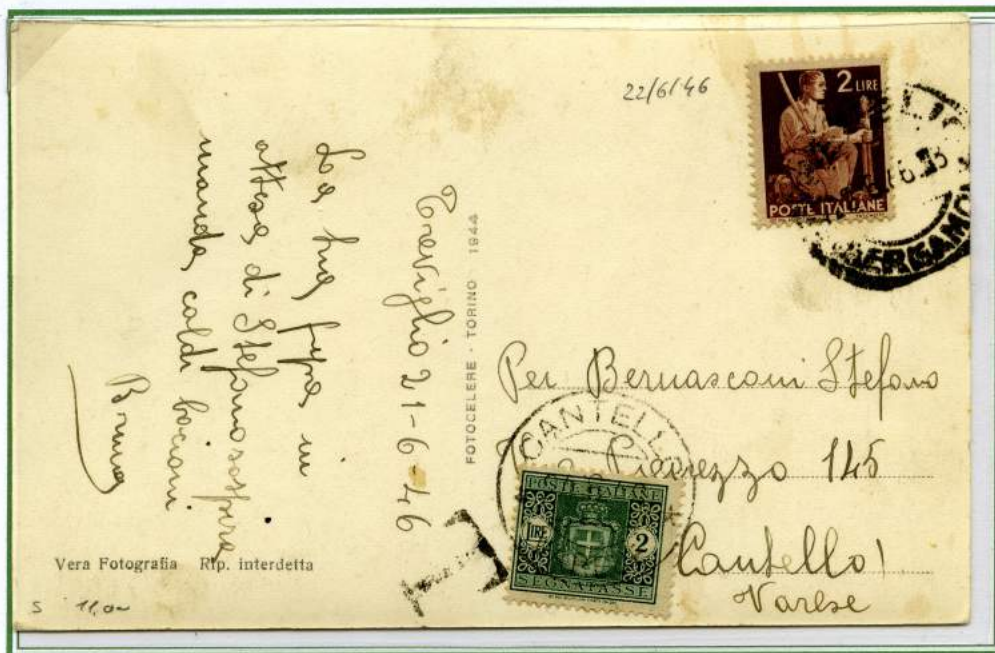 22/6/46
2 LIRE
POSTE ITALIANE
BERGAMO
Treviglio 21-6-46
La tua pupa in
attesa di Stefano sospira
manda caldi bacioni
Bruna
FOTOCELERE - TORINO 1944
Per Bernasconi Stefano
145
Cantello
Varese
CANTELLO
POSTE ITALIANE
LIRE 2
SEGNATASSE
T
Vera Fotografia Rip. interdetta
S 11,00